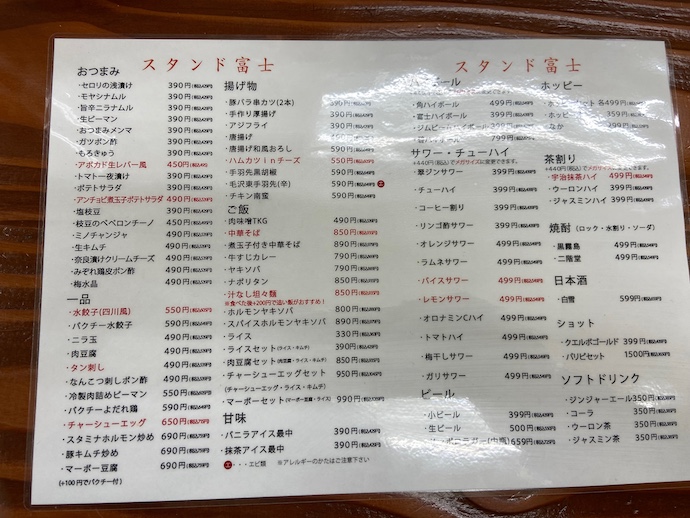 スタンド富士
おつまみ
・セロリの浅漬け 390円
・モヤシナムル 390円
・旨辛ニラナムル 390円
・生ピーマン 390円
・おつまみメンマ 390円
・ガツポン酢 390円
・もろきゅう 390円
・アボカド生レバー風 450円
・トマト一夜漬け 390円
・ポテトサラダ 390円
・アンチョビ煮玉子ポテトサラダ 490円
・塩枝豆 390円
・枝豆のペペロンチーノ 450円
・ミノチャンジャ 490円
・生キムチ 490円
・奈良漬けクリームチーズ 490円
・みぞれ鶏皮ポン酢 490円
・梅水晶 490円
一品
・水餃子(四川風) 550円
・パクチー水餃子 590円
・ニラ玉 590円
・肉豆腐 590円
・タン刺し 590円
・なんこつ刺しポン酢 590円
・冷製肉詰めピーマン 590円
・パクチーよだれ鶏 590円
・チャーシューエッグ 650円
・スタミナホルモン炒め 690円
・豚キムチ炒め 690円
・マーボー豆腐 690円
(+100円でパクチー付)
揚げ物
・豚バラ串カツ(2本) 390円
・手作り厚揚げ 490円
・アジフライ 490円
・唐揚げ 490円
・唐揚げ和風おろし 590円
・ハムカツinチーズ 550円
・手羽先黒胡椒 590円
・毛沢東手羽先(辛) 590円 エ
・チキン南蛮 590円
ご飯
・肉味噌TKG 490円
・中華そば 850円
・煮玉子付き中華そば 890円
・牛すじカレー 790円
・ヤキソバ 790円
・ナポリタン 850円
・汁なし坦々麺 850円
※食べた後+200円で追い飯がおすすめ!
・ホルモンヤキソバ 800円
・スパイスホルモンヤキソバ 890円
・ライス 330円
・ライスセット(ライス・キムチ) 390円
・肉豆腐セット(肉豆腐・ライス・キムチ) 850円
・チャーシューエッグセット 950円
(チャーシューエッグ・ライス・キムチ)
・マーボーセット(マーボー豆腐・ライス) 990円
甘味
・バニラアイス最中 390円
・抹茶アイス最中 390円
エ・・・エビ類 ※アレルギーのかたはご注意下さい
スタンド富士
・角ハイボール 499円
・富士ハイボール 499円
・ジムビームハイボール 399円
サワー・チューハイ
+440円(税込)でメガサイズに変更できます。
・翠ジンサワー 399円
・チューハイ 399円
・コーヒー割り 399円
・リンゴ酢サワー 399円
・オレンジサワー 499円
・ラムネサワー 499円
・バイスサワー 499円
・レモンサワー 499円
・オロナミンCハイ 499円
・トマトハイ 499円
・梅干しサワー 499円
・ガリサワー 499円
ビール
・小ビール 399円
・生ビール 500円
659円
ホッピー
各499円
359円
・なか 299円
茶割り
+440円(税込)でメガサイズに変更できます。
・宇治抹茶ハイ 499円
・ウーロンハイ 399円
・ジャスミンハイ 399円
焼酎 (ロック・水割り・ソーダ)
・黒霧島 499円
・二階堂 499円
日本酒
・白雪 599円
ショット
・クエルボゴールド 399円
・パリピセット 1500円
ソフトドリンク
・ジンジャーエール 350円
・コーラ 350円
・ウーロン茶 350円
・ジャスミン茶 350円